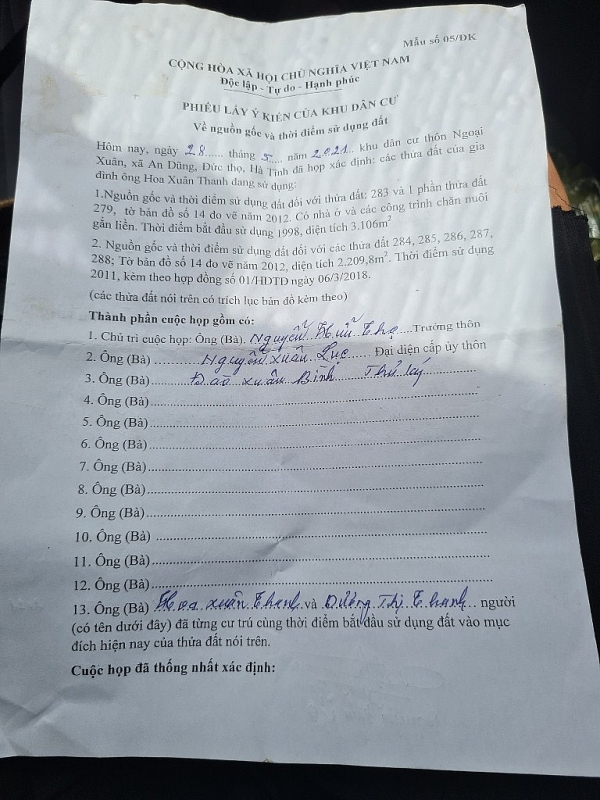 Mẫu số 05/ĐK
CỘNG HÒA XÃ HỘI CHỦ NGHĨA VIỆT NAM
Độc lập - Tự do - Hạnh phúc
PHIẾU LẤY Ý KIẾN CỦA KHU DÂN CƯ
Về nguồn gốc và thời điểm sử dụng đất
Hôm nay, ngày 28...... tháng 5.... năm 2021... khu dân cư thôn Ngoại
Xuân, xã An Dũng, Đức thọ, Hà Tĩnh đã họp xác định: các thửa đất của gia
đình ông Hoa Xuân Thanh đang sử dụng:
1.Nguồn gốc và thời điểm sử dụng đất đối với thửa đất: 283 và 1 phần thửa đất
279, tờ bản đồ số 14 đo vẽ năm 2012. Có nhà ở và các công trình chăn nuôi
gắn liền. Thời điểm bắt đầu sử dụng 1998, diện tích 3.106m²
2. Nguồn gốc và thời điểm sử dụng đất đối với các thửa đất 284, 285, 286, 287,
288; Tờ bản đồ số 14 đo vẽ năm 2012, diện tích 2.209,8m². Thời điểm sử dụng
2011, kèm theo hợp đồng số 01/HĐTD ngày 06/3/2018.
(các thửa đất nói trên có trích lục bản đồ kèm theo)
Thành phần cuộc họp gồm có:
1. Chủ trì cuộc họp: Ông (Bà). Nguyễn Hữu Thọ....Trưởng thôn
2. Ông (Bà) ............Nguyễn Xuân Lục...... Đại diện cấp ủy thôn
3. Ông (Bà)..........Đào Xuân Bình Thư ký............
4. Ông (Bà)..............................................................
5. Ông (Bà)..............................................................
6. Ông (Bà)..............................................................
7. Ông (Bà)..............................................................
8. Ông (Bà)..............................................................
9. Ông (Bà)..............................................................
10. Ông (Bà) ............................................................
11. Ông (Bà)............................................................
12. Ông (Bà)............................................................
13. Ông (Bà) Hoa Xuân Thanh và Dương Thị Thanh... người
(có tên dưới đây) đã từng cư trú cùng thời điểm bắt đầu sử dụng đất vào mục
đích hiện nay của thửa đất nói trên.
Cuộc họp đã thống nhất xác định: